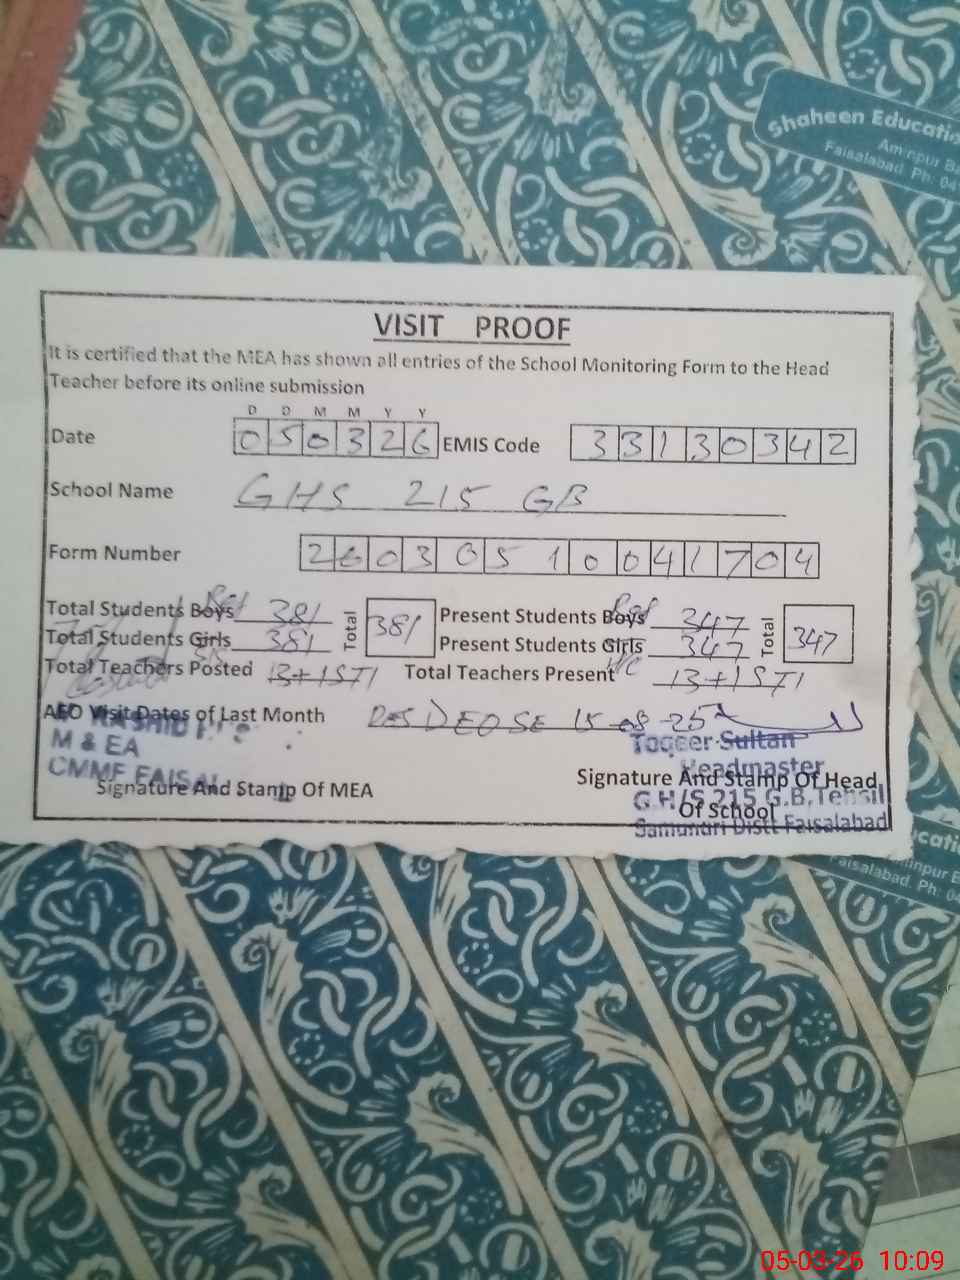 Shaheen Educatio
Aminpur Ba
Faisalabad. Ph: 04
VISIT PROOF
It is certified that the MEA has shown all entries of the School Monitoring Form to the Head
Teacher before its online submission
D D M M Y Y
Date 050326 EMIS Code 33130342
School Name GHS 215 GB
Form Number 26030510041704
Total Students Boys 381 Total 381 Present Students Boys 347 Total 347
Total Students Girls 381 Present Students Girls 347
Total Teachers Posted 13+1STI Total Teachers Present 13+1STI
AEO Visit Dates of Last Month DEOSE 15-08-25
M & EA
CMMF FAISAL
Signature And Stamp Of MEA
Toqeer Sultan
Headmaster
Signature And Stamp Of Head
G.H/S 215 G.B, Tehsil
Of School
Samundri Distt Faisalabad
ucatio
Aminpur B
Faisalabad. Ph: 04
05-03-26 10:09